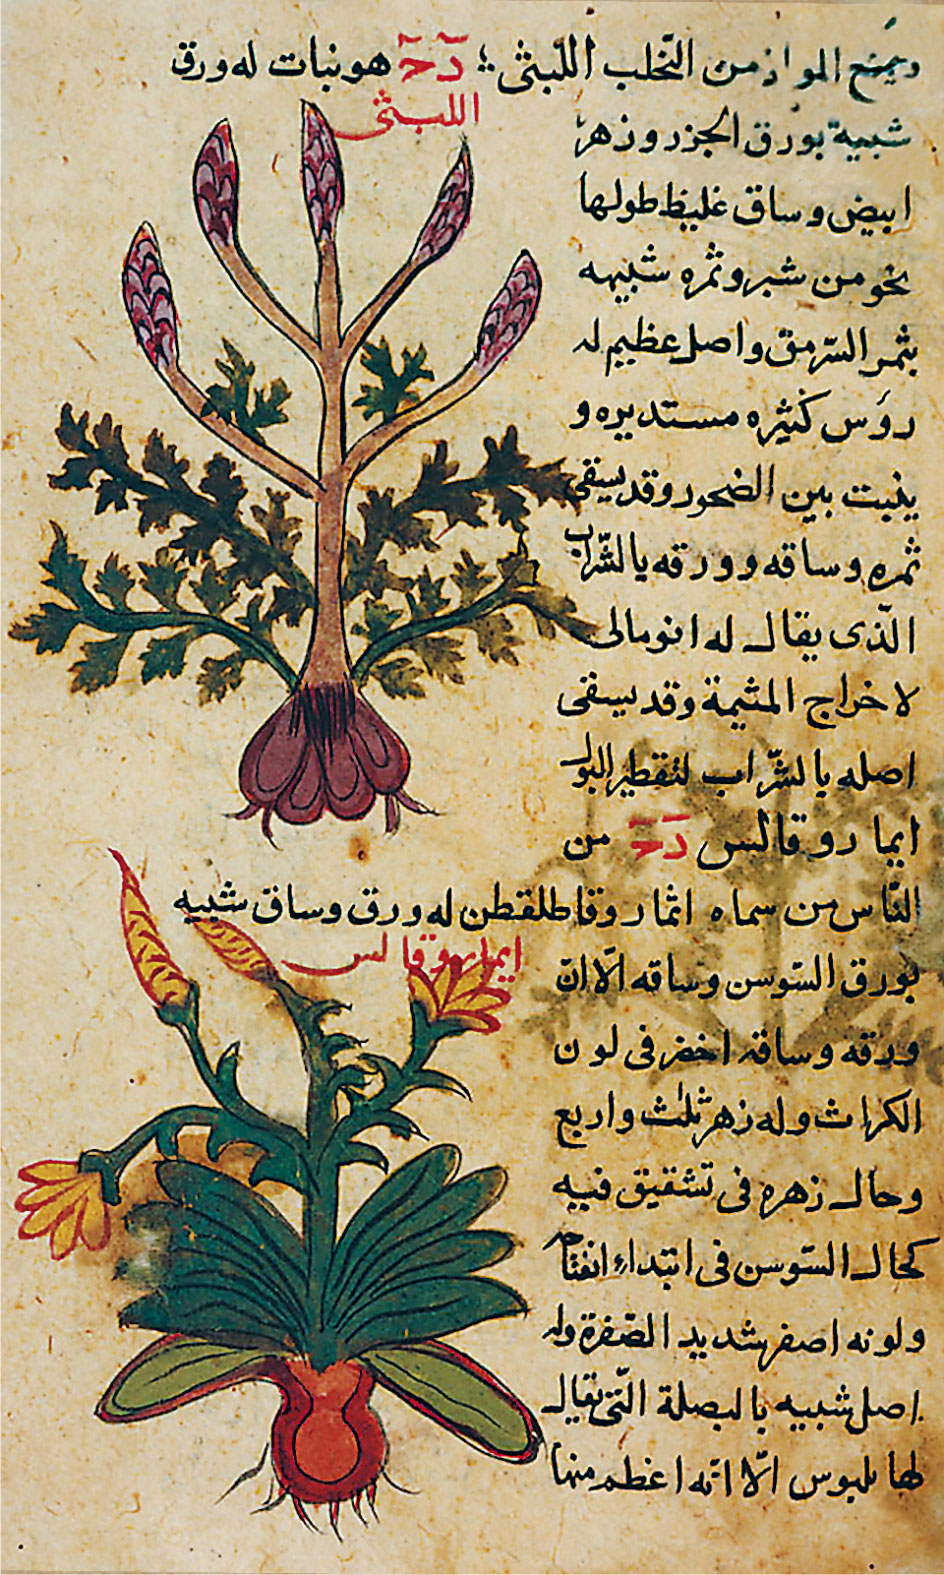 ويمنع المواد من التحلب اللبثى؛ دـح هو نبات له ورق
اللبثى
شبيه بورق الجزر وزهر
ابيض وساق غليظ طولها
نحو من شبر وثمره شبيهه
بثمر السرمق واصل عظيم له
روس كثيره مستديره و
ينبت بين الصخور وقد يسقى
ثمره وساقه وورقه بالشراب
الذى يقال له انومالى
لاخراج المشيمة وقد يسقى
اصله بالشراب لتقطير البول
ايمارو قالس دـح من
الناس من سماه انمار وقاطلقطن له ورق وساق شبيه
ايمارو قالس
بورق السوسن وساقه الا ان
ورقه وساقه اخضر فى لون
الكراث وله زهر ثلث واربع
وحال زهره فى تشقيق فيه
كحال السوسن فى ابتداء انفتاحه
ولونه اصفر شديد الصفرة وله
اصل شبيه بالبصلة التى يقال
لها بلبوس الا انه اعظم منها